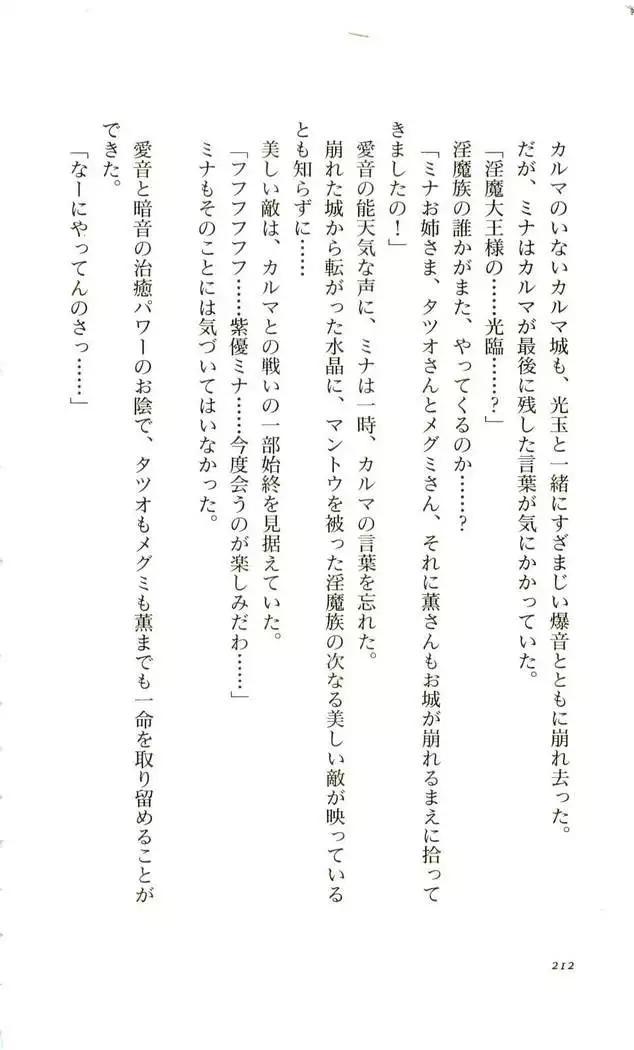 カルマのいないカルマ城も、光玉と一緒にすざまじい爆音とともに崩れ去った。
だが、ミナはカルマが最後に残した言葉が気にかかっていた。
「淫魔大王様の……光臨……?」
淫魔族の誰かがまた、やってくるのか……?
「ミナお姉さま、タツオさんとメグミさん、それに薫さんもお城が崩れるまえに拾って
きましたの!」
愛音の能天気な声に、ミナは一時、カルマの言葉を忘れた。
崩れた城から転がった水晶に、マントウを被った淫魔族の次なる美しい敵が映っている
とも知らずに……
美しい敵は、カルマとの戦いの一部始終を見据えていた。
「フフフフフ……紫優ミナ……今度会うのが楽しみだわ……」
ミナもそのことには気づいてはいなかった。
愛音と暗音の治癒パワーのお陰で、タツオもメグミも薫までも一命を取り留めることが
できた。
「なーにやってんのさっ……」
212